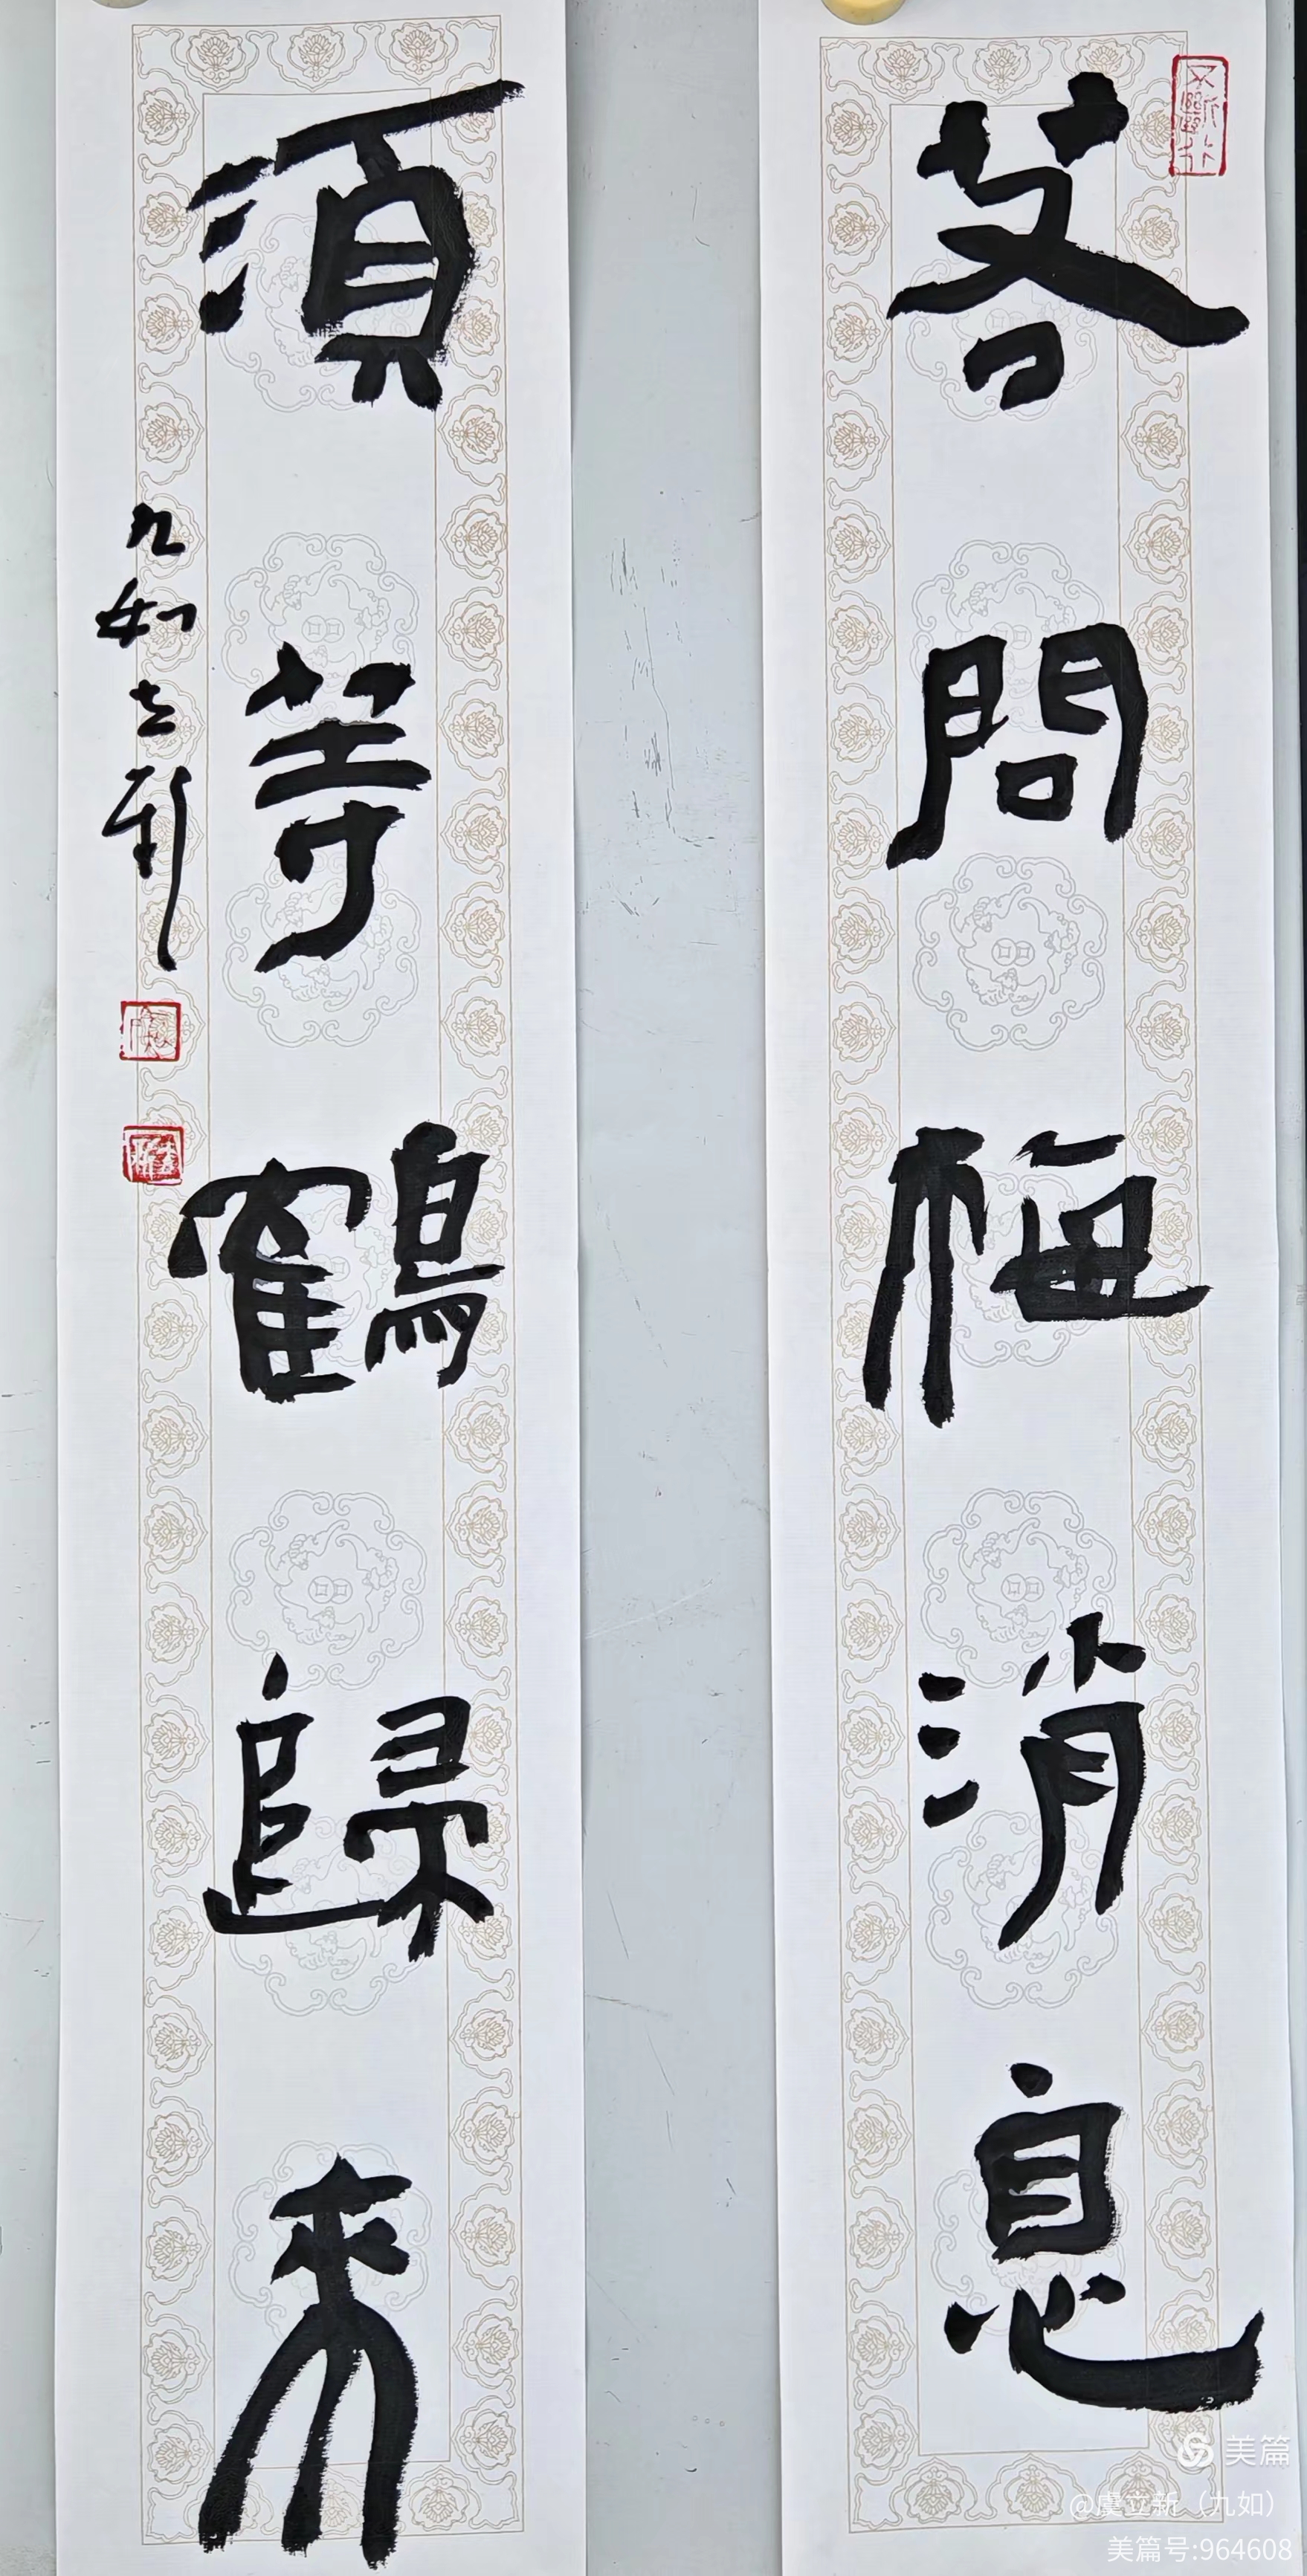 若問梅消息
須等鶴歸來
九如立新
美篇
@虞立新（九如）
美篇号:964608